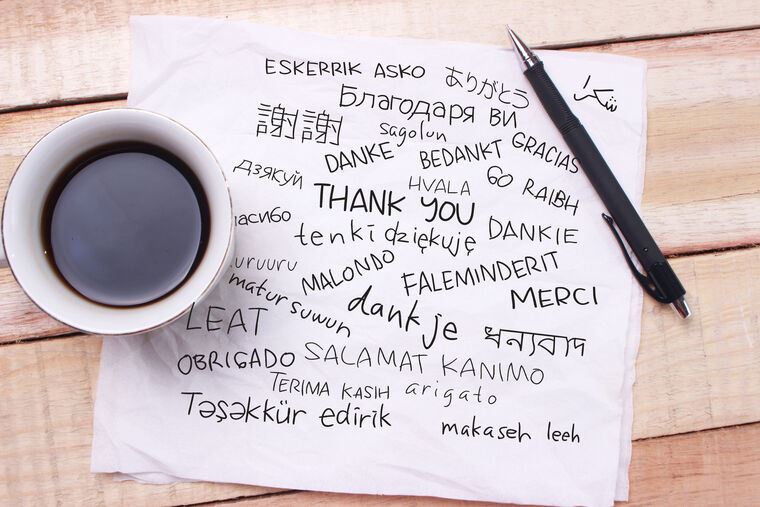 ESKERRIK ASKO
ありがとう
شكرا
Благодаря ви
謝謝
sagolun
GRACIAS
DANKE
BEDANKT
дзякуй
HVALA
GO RAIBH
THANK YOU
асибо
tenki
dziękuję
DANKIE
uruuru
MALONDO
FALEMINDERIT
matur suwun
MERCI
LEAT
dank je
ধন্যবাদ
OBRIGADO
SALAMAT KANIMO
TERIMA KASIH
arigato
Təşəkkür edirik
makaseh leeh